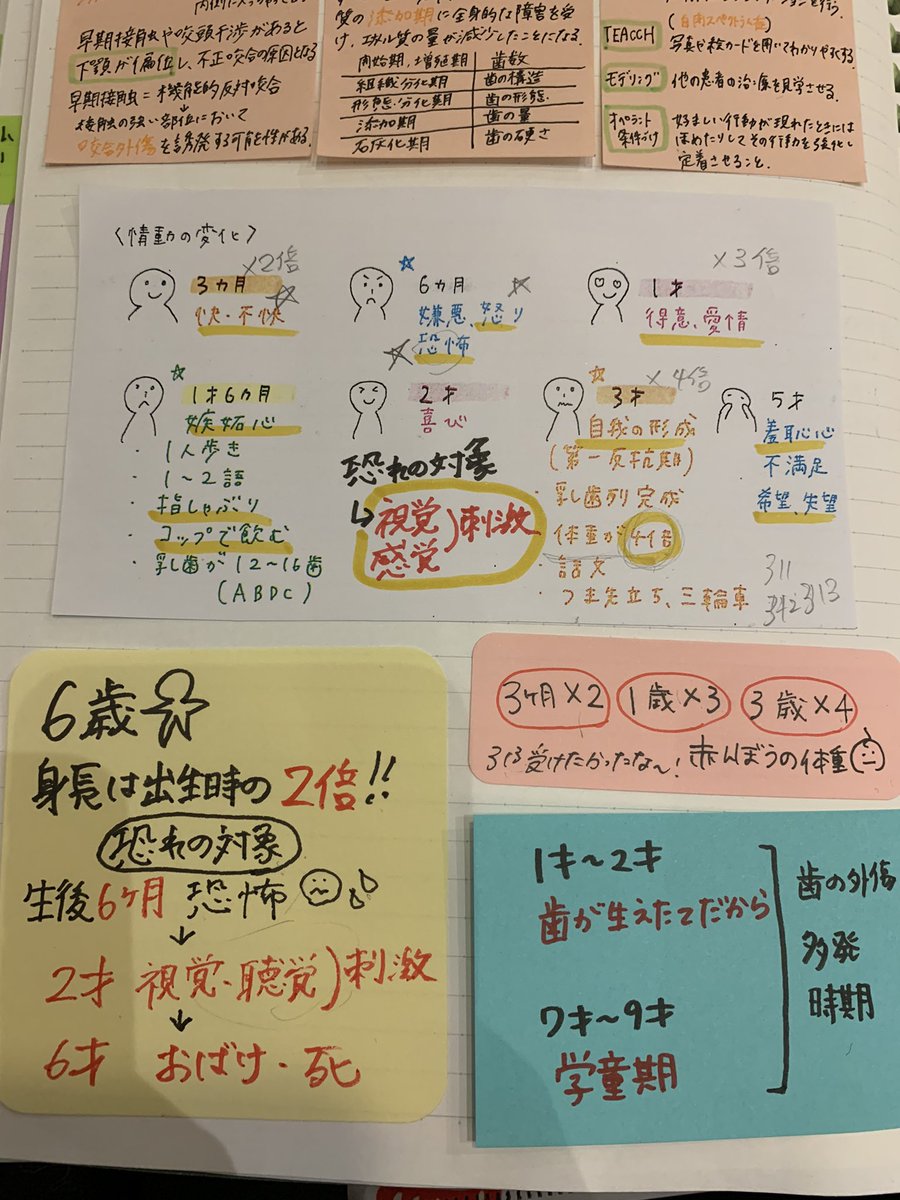 早期接触や咬頭干渉があると
下顎が偏位し、不正咬合の原因となる
早期接触=機能的反対咬合
接触の強い部位において
咬合性外傷を誘発する可能性がある。
質の添加期に全身的な障害を受
け、エナメル質の量が減少したことになる。
開始期、増殖期 歯数
組織分化期 歯の構造
形態分化期 歯の形態
添加期 歯の量
石灰化期 歯の硬さ
TEACCH
写真や絵カードを用いてわかりやすくする。
モデリング 他の患者の治療を見学させる。
オペラント
条件づけ
好ましい行動が現れたときには
ほめたりしてその行動を強化し
定着させること。
〈情動の変化〉
3カ月 ×2倍
快・不快
6カ月
嫌悪、怒り
恐怖
×3倍
1才
得意、愛情
1才6カ月
嫉妬心
・1人歩き
・1〜2語
・指しゃぶり
・コップで飲む
・乳歯が12〜16歯
(ABDC)
2才
喜び
恐れの対象
↳視覚)刺激
感覚
×4倍
3才
自我の形成
(第一反抗期)
・乳歯列完成
・体重が4倍
・話文
・つま先立ち、三輪車
5才
羞恥心
不満足
希望、失望
311
313
6歳
身長は出生時の2倍!!
恐れの対象
生後6ヶ月 恐怖
↓
2才 視覚・聴覚)刺激
↓
6才 おばけ・死
3ヶ月×2 1歳×3 3歳×4
受けたかったな〜!赤んぼうの体重
1才〜2才
歯が生えたてだから
7才〜9才
学童期
歯の外傷
多発
時期